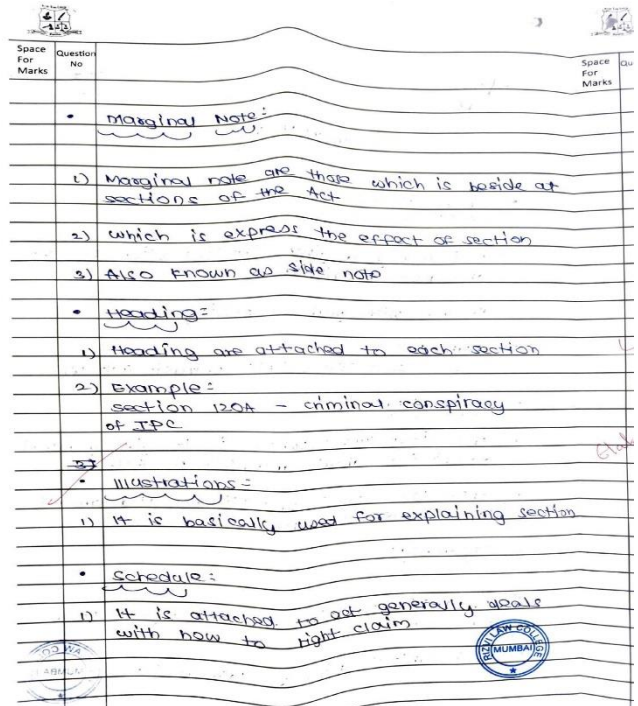 Space
For
Marks
Question
No
Space
For
Marks
Qu
• Marginal Note:
1) Marginal note are those which is beside at
sections of the Act
2) which is express the effect of section
3) Also known as side note
• Heading:
1) Heading are attached to each section
2) Example:
section 120A - criminal conspiracy
of IPC
3)
• Illustrations:
1) It is basically used for explaining section
• Schedule:
1) It is attached to act generally deals
with how to right claim
RIZVI LAW COLLEGE
MUMBAI